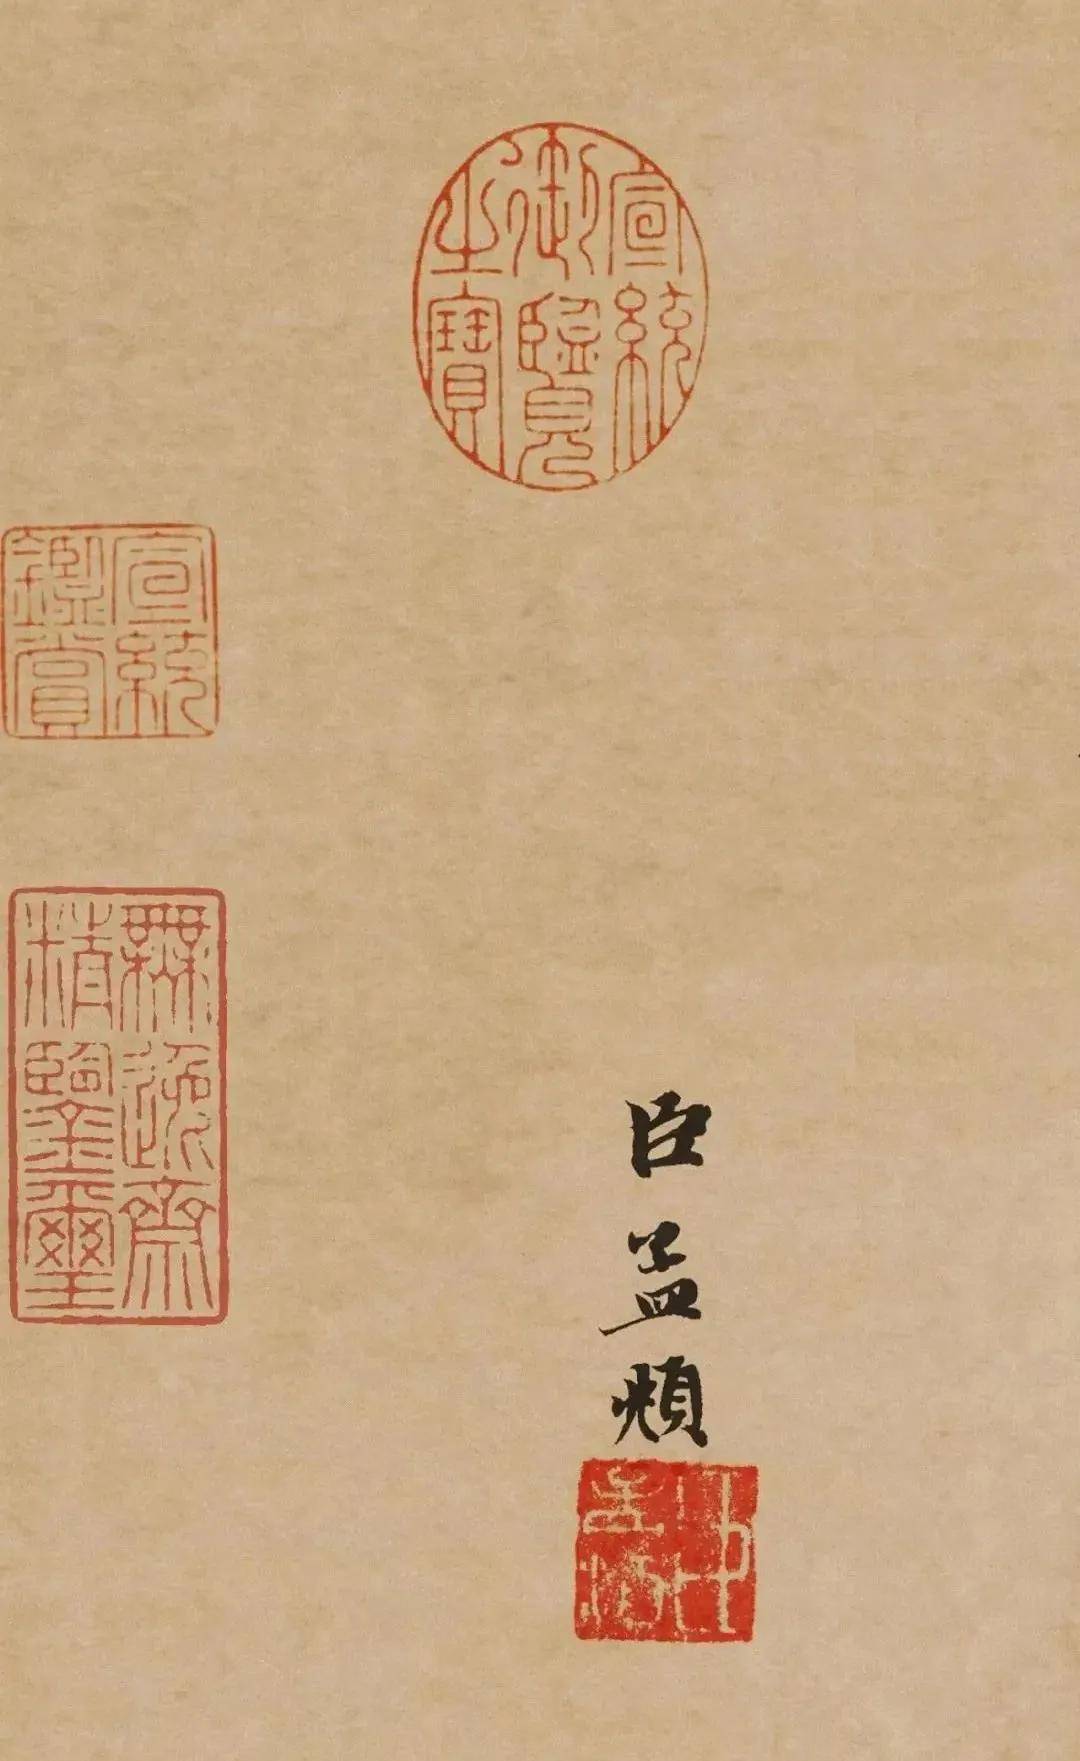 宣統御覽之寶
宣統鑑賞
無逸齋精鑒璽
臣孟頫